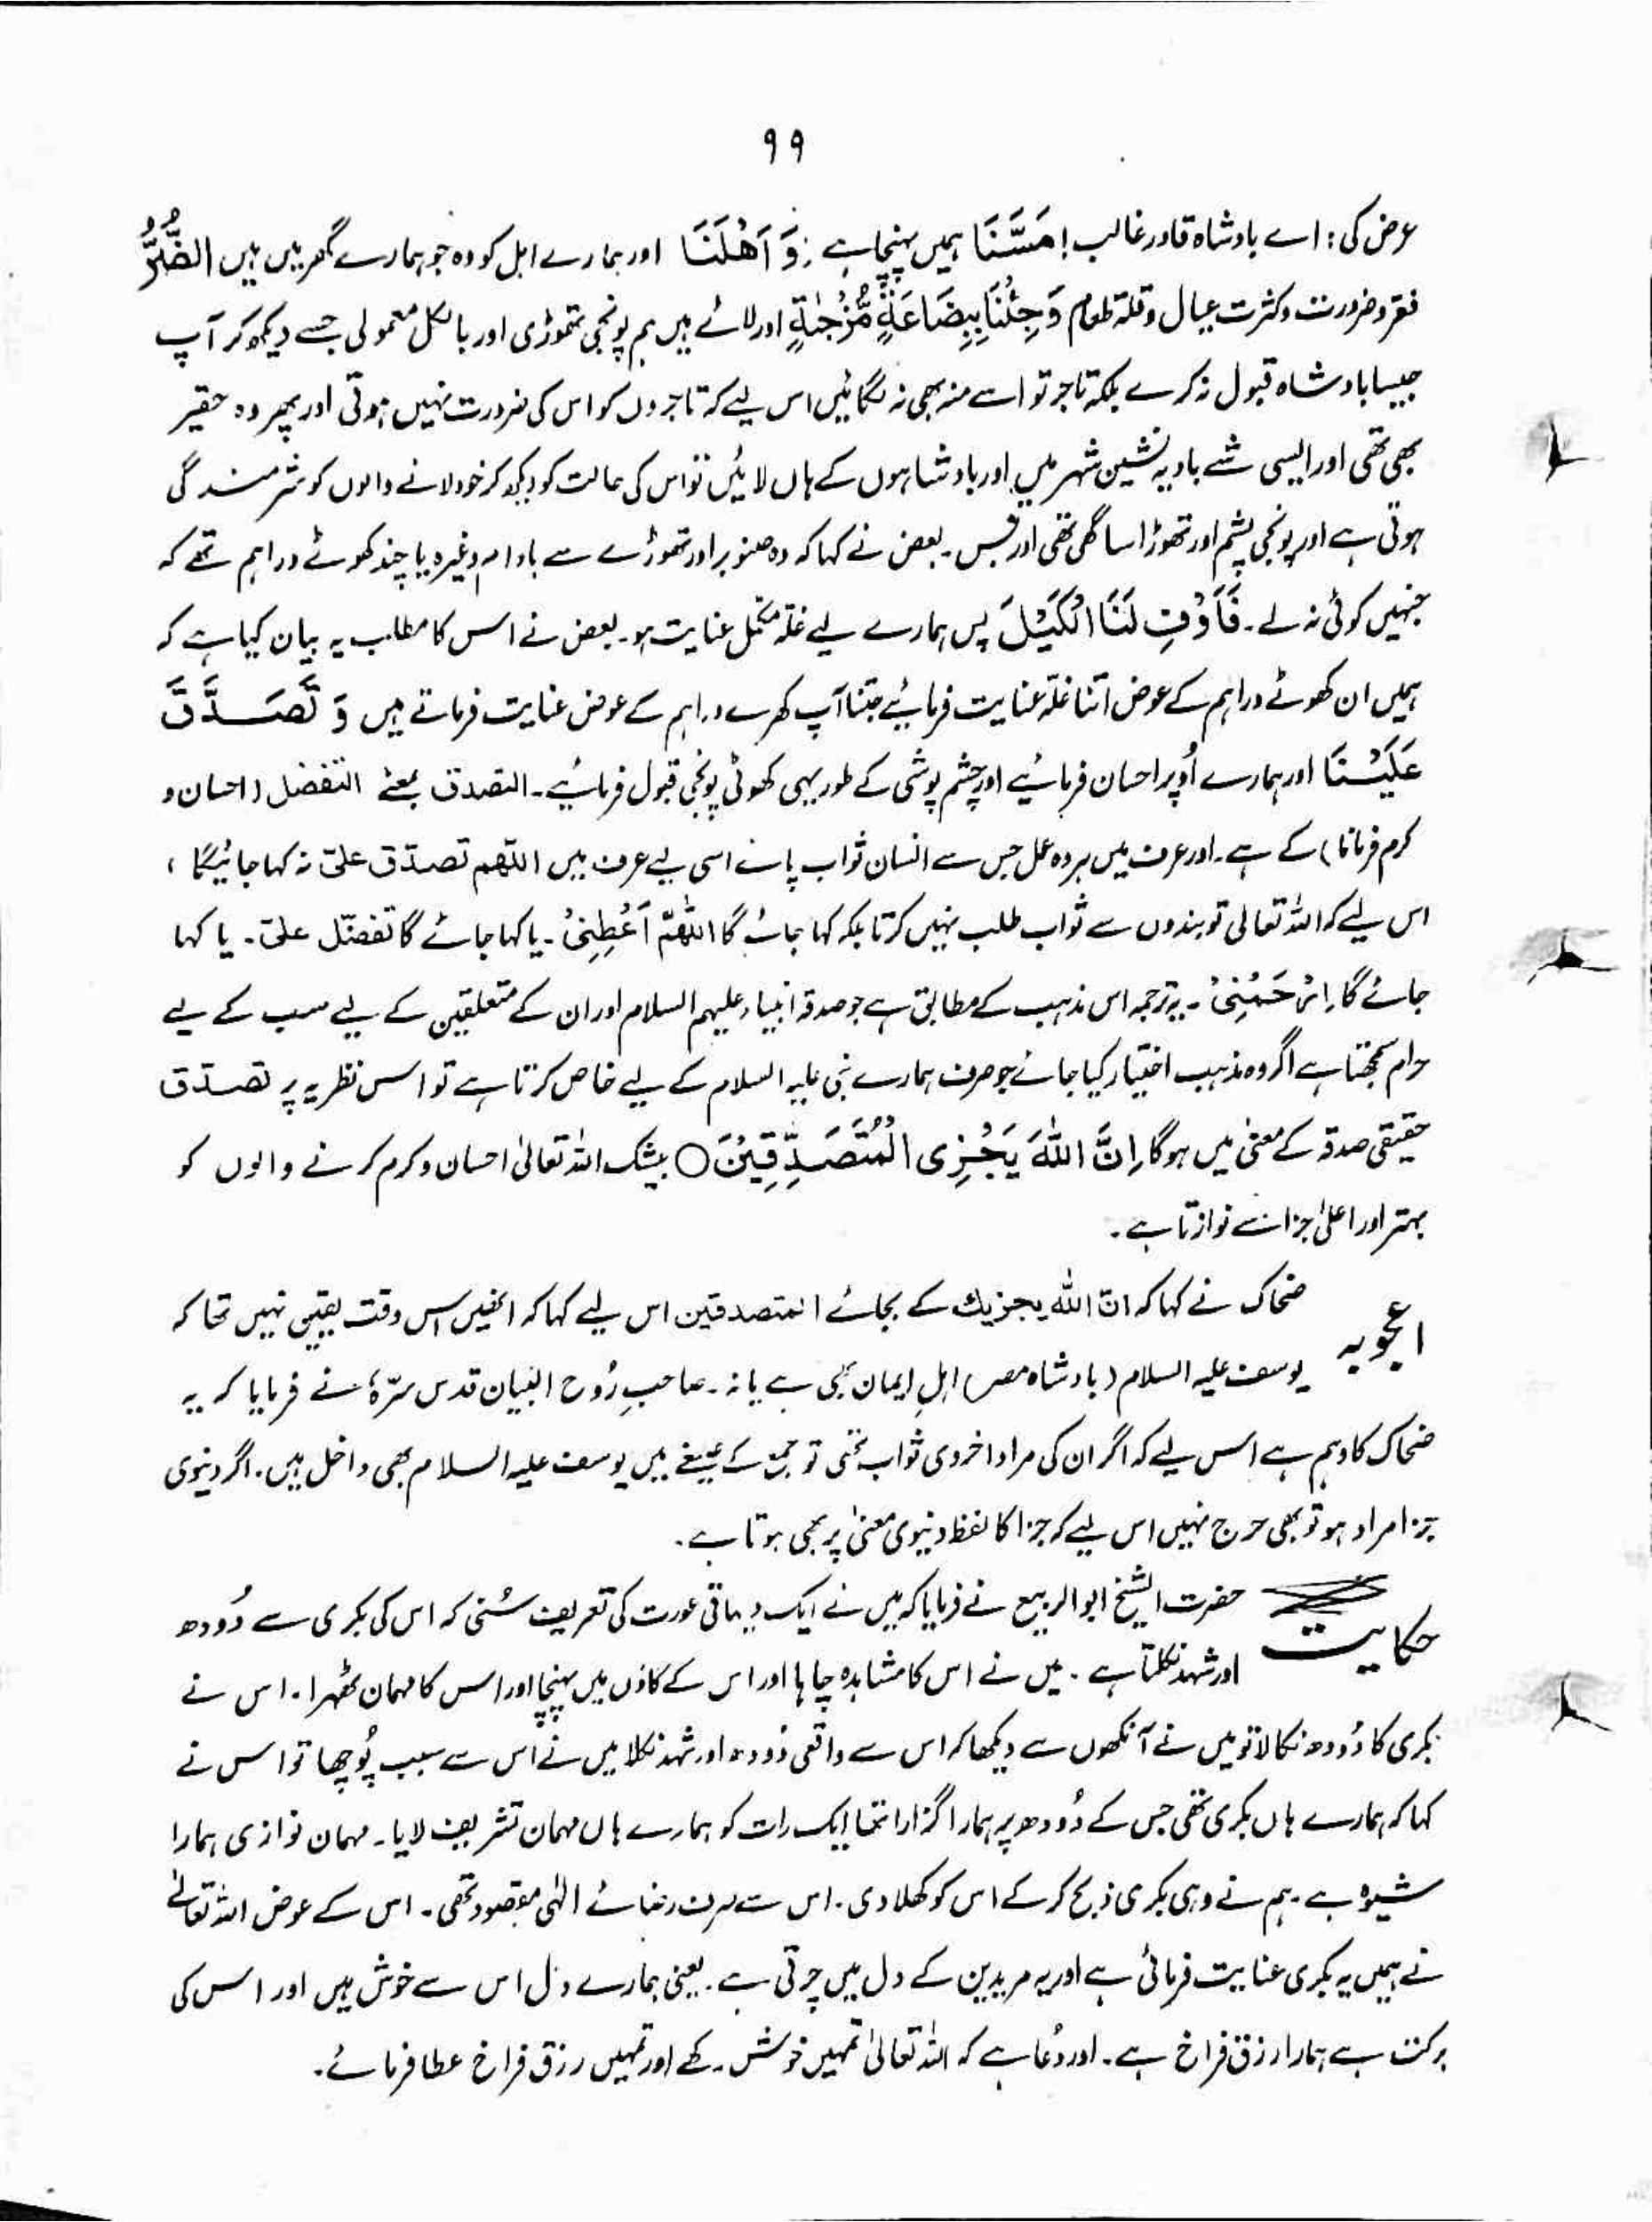 ۹۹
عرض کی: اے بادشاہ قادر غالب! مَسَّنَا ہمیں پہنچا ہے وَ اَهْلَنَا اور ہمارے اہل کو وہ جو ہمارے گھر میں ہیں الضُّرُّ
فقر و ضرورت و کثرت عیال و قلۃ طعام وَ جِئْنَا بِبِضَاعَةٍ مُّزْجٰىةٍ اور لائے ہیں ہم پونجی تھوڑی اور بالکل معمولی جسے دیکھ کر آپ
جیسا بادشاہ قبول نہ کرے بلکہ تاجر تو اسے منہ بھی نہ لگائیں اس لیے کہ تاجروں کو اس کی ضرورت نہیں ہوتی اور پھر وہ حقیر
بھی تھی اور ایسی شے بادیہ نشین شہر میں اور بادشاہوں کے ہاں لائیں تو اس کی حالت کو دیکھ کر خود لانے والوں کو شرمندگی
ہوتی ہے اور پونجی پشم اور تھوڑا سا گھی تھی اور بس۔ بعض نے کہا کہ وہ صنوبر اور تھوڑے سے بادام وغیرہ یا چند کھوٹے دراہم تھے کہ
جنہیں کوئی نہ لے۔ فَاَوْفِ لَنَا الْكَيْلَ پس ہمارے لیے غلّہ مکمل عنایت ہو۔ بعض نے اس کا مطلب یہ بیان کیا ہے کہ
ہمیں ان کھوٹے دراہم کے عوض اتنا غلّہ عنایت فرمائیے جتنا آپ کھرے دراہم کے عوض عنایت فرماتے ہیں وَ تَصَدَّقْ
عَلَيْنَا اور ہمارے اُوپر احسان فرمائیے اور چشم پوشی کے طور یہی کھوٹی پونجی قبول فرمائیے۔ التصدق بمعنے التفضل (احسان و
کرم فرمانا) کے ہے۔ اور عرف میں ہر وہ عمل جس سے انسان ثواب پائے اسی لیے عرف میں اللّٰهم تصدّق علیّ نہ کہا جائیگا،
اس لیے کہ اللہ تعالی تو بندوں سے ثواب طلب نہیں کرتا بلکہ کہا جائے گا اللّٰهمّ اَعْطِنِیْ۔ یا کہا جائے گا تفضّل علیّ۔ یا کہا
جائے گا اِرْحَمْنِیْ۔ یہ ترجمہ اس مذہب کے مطابق ہے جو صدقہ انبیاء علیہم السلام اور ان کے متعلقین کے لیے سب کے لیے
حرام سمجھتا ہے اگر وہ مذہب اختیار کیا جائے جو صرف ہمارے نبی علیہ السلام کے لیے خاص کرتا ہے تو اس نظریہ پر تصدّق
حقیقی صدقہ کے معنیٰ میں ہوگا اِنَّ اللّٰهَ يَجْزِی الْمُتَصَدِّقِيْنَ ○ بیشک اللہ تعالیٰ احسان و کرم کرنے والوں کو
بہتر اور اعلیٰ جزا سے نوازتا ہے۔
اعجوبہ ضحاک نے کہا کہ انّ اللّٰه یجزیك کے بجائے المتصدقین اس لیے کہا کہ انھیں اس وقت یقین نہیں تھا کہ
یوسف علیہ السلام (بادشاہ مصر) اہلِ ایمان بھی ہے یا نہ۔ صاحبِ رُوح البیان قدس سرّہٗ نے فرمایا کہ یہ
ضحاک کا وہم ہے اس لیے کہ اگر ان کی مراد اخروی ثواب تھی تو جمع کے صیغے میں یوسف علیہ السلام بھی داخل ہیں۔ اگر دنیوی
جزا مراد ہو تو بھی حرج نہیں اس لیے کہ جزا کا لفظ دنیوی معنیٰ پر بھی ہوتا ہے۔
حکایت حضرت الشیخ ابوالربیع نے فرمایا کہ میں نے ایک دیہاتی عورت کی تعریف سُنی کہ اس کی بکری سے دُودھ
اور شہد نکلتا ہے۔ میں نے اس کا مشاہدہ چاہا اور اس کے گاؤں میں پہنچا اور اس کا مہمان ٹھہرا۔ اس نے
بکری کا دُودھ نکالا تو میں نے آنکھوں سے دیکھا کہ اس سے واقعی دُودھ اور شہد نکلا میں نے اس سے سبب پُوچھا تو اس نے
کہا کہ ہمارے ہاں بکری تھی جس کے دُودھ پر ہمارا گزارا تھا ایک رات کو ہمارے ہاں مہمان تشریف لایا۔ مہمان نوازی ہمارا
شیوہ ہے۔ ہم نے وہی بکری ذبح کر کے اس کو کھلا دی۔ اس سے صرف رضائے الٰہی مقصود تھی۔ اس کے عوض اللہ تعالیٰ
نے ہمیں یہ بکری عنایت فرمائی ہے اور یہ مریدین کے دل میں چرتی ہے۔ یعنی ہمارے دل اس سے خوش ہیں اور اس کی
برکت سے ہمارا رزق فراخ ہے۔ اور دُعا ہے کہ اللہ تعالیٰ تمہیں خوش رکھے اور تمہیں رزق فراخ عطا فرمائے۔